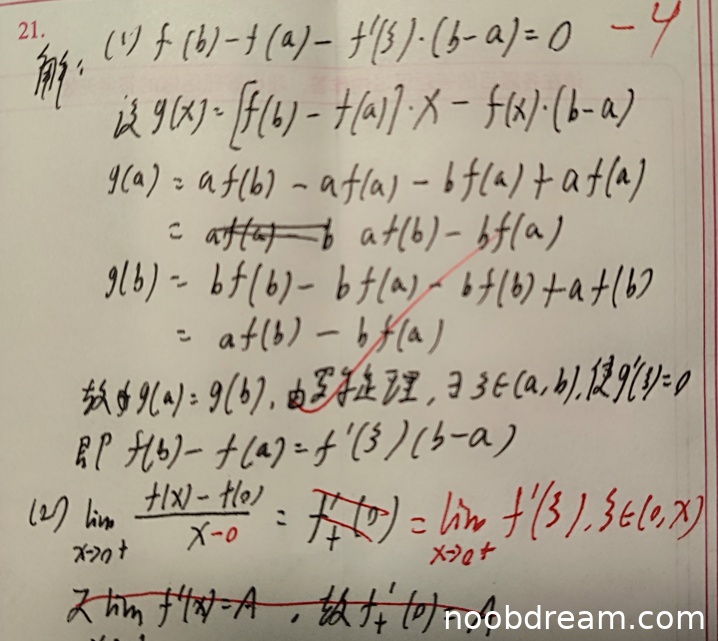 21.
解: (1) f(b)-f(a)-f'(ξ)·(b-a)=0 -4
设 g(x)=[f(b)-f(a)]·x-f(x)·(b-a)
g(a) = af(b)-af(a)-bf(a)+af(a)
= af(a)-b af(b)-bf(a)
g(b) = bf(b)-bf(a)-bf(b)+af(b)
= af(b)-bf(a)
故由g(a)=g(b), 由罗尔定理, ∃ξ∈(a,b), 使g'(ξ)=0
即 f(b)-f(a)=f'(ξ)(b-a)
(2) lim x→0+ f(x)-f(0) / x-0 = f'+(0) = lim x→0+ f'(ξ), ξ∈(0,x)
又lim f'(x)=A, 故f+'(0)=A
noobdream.com